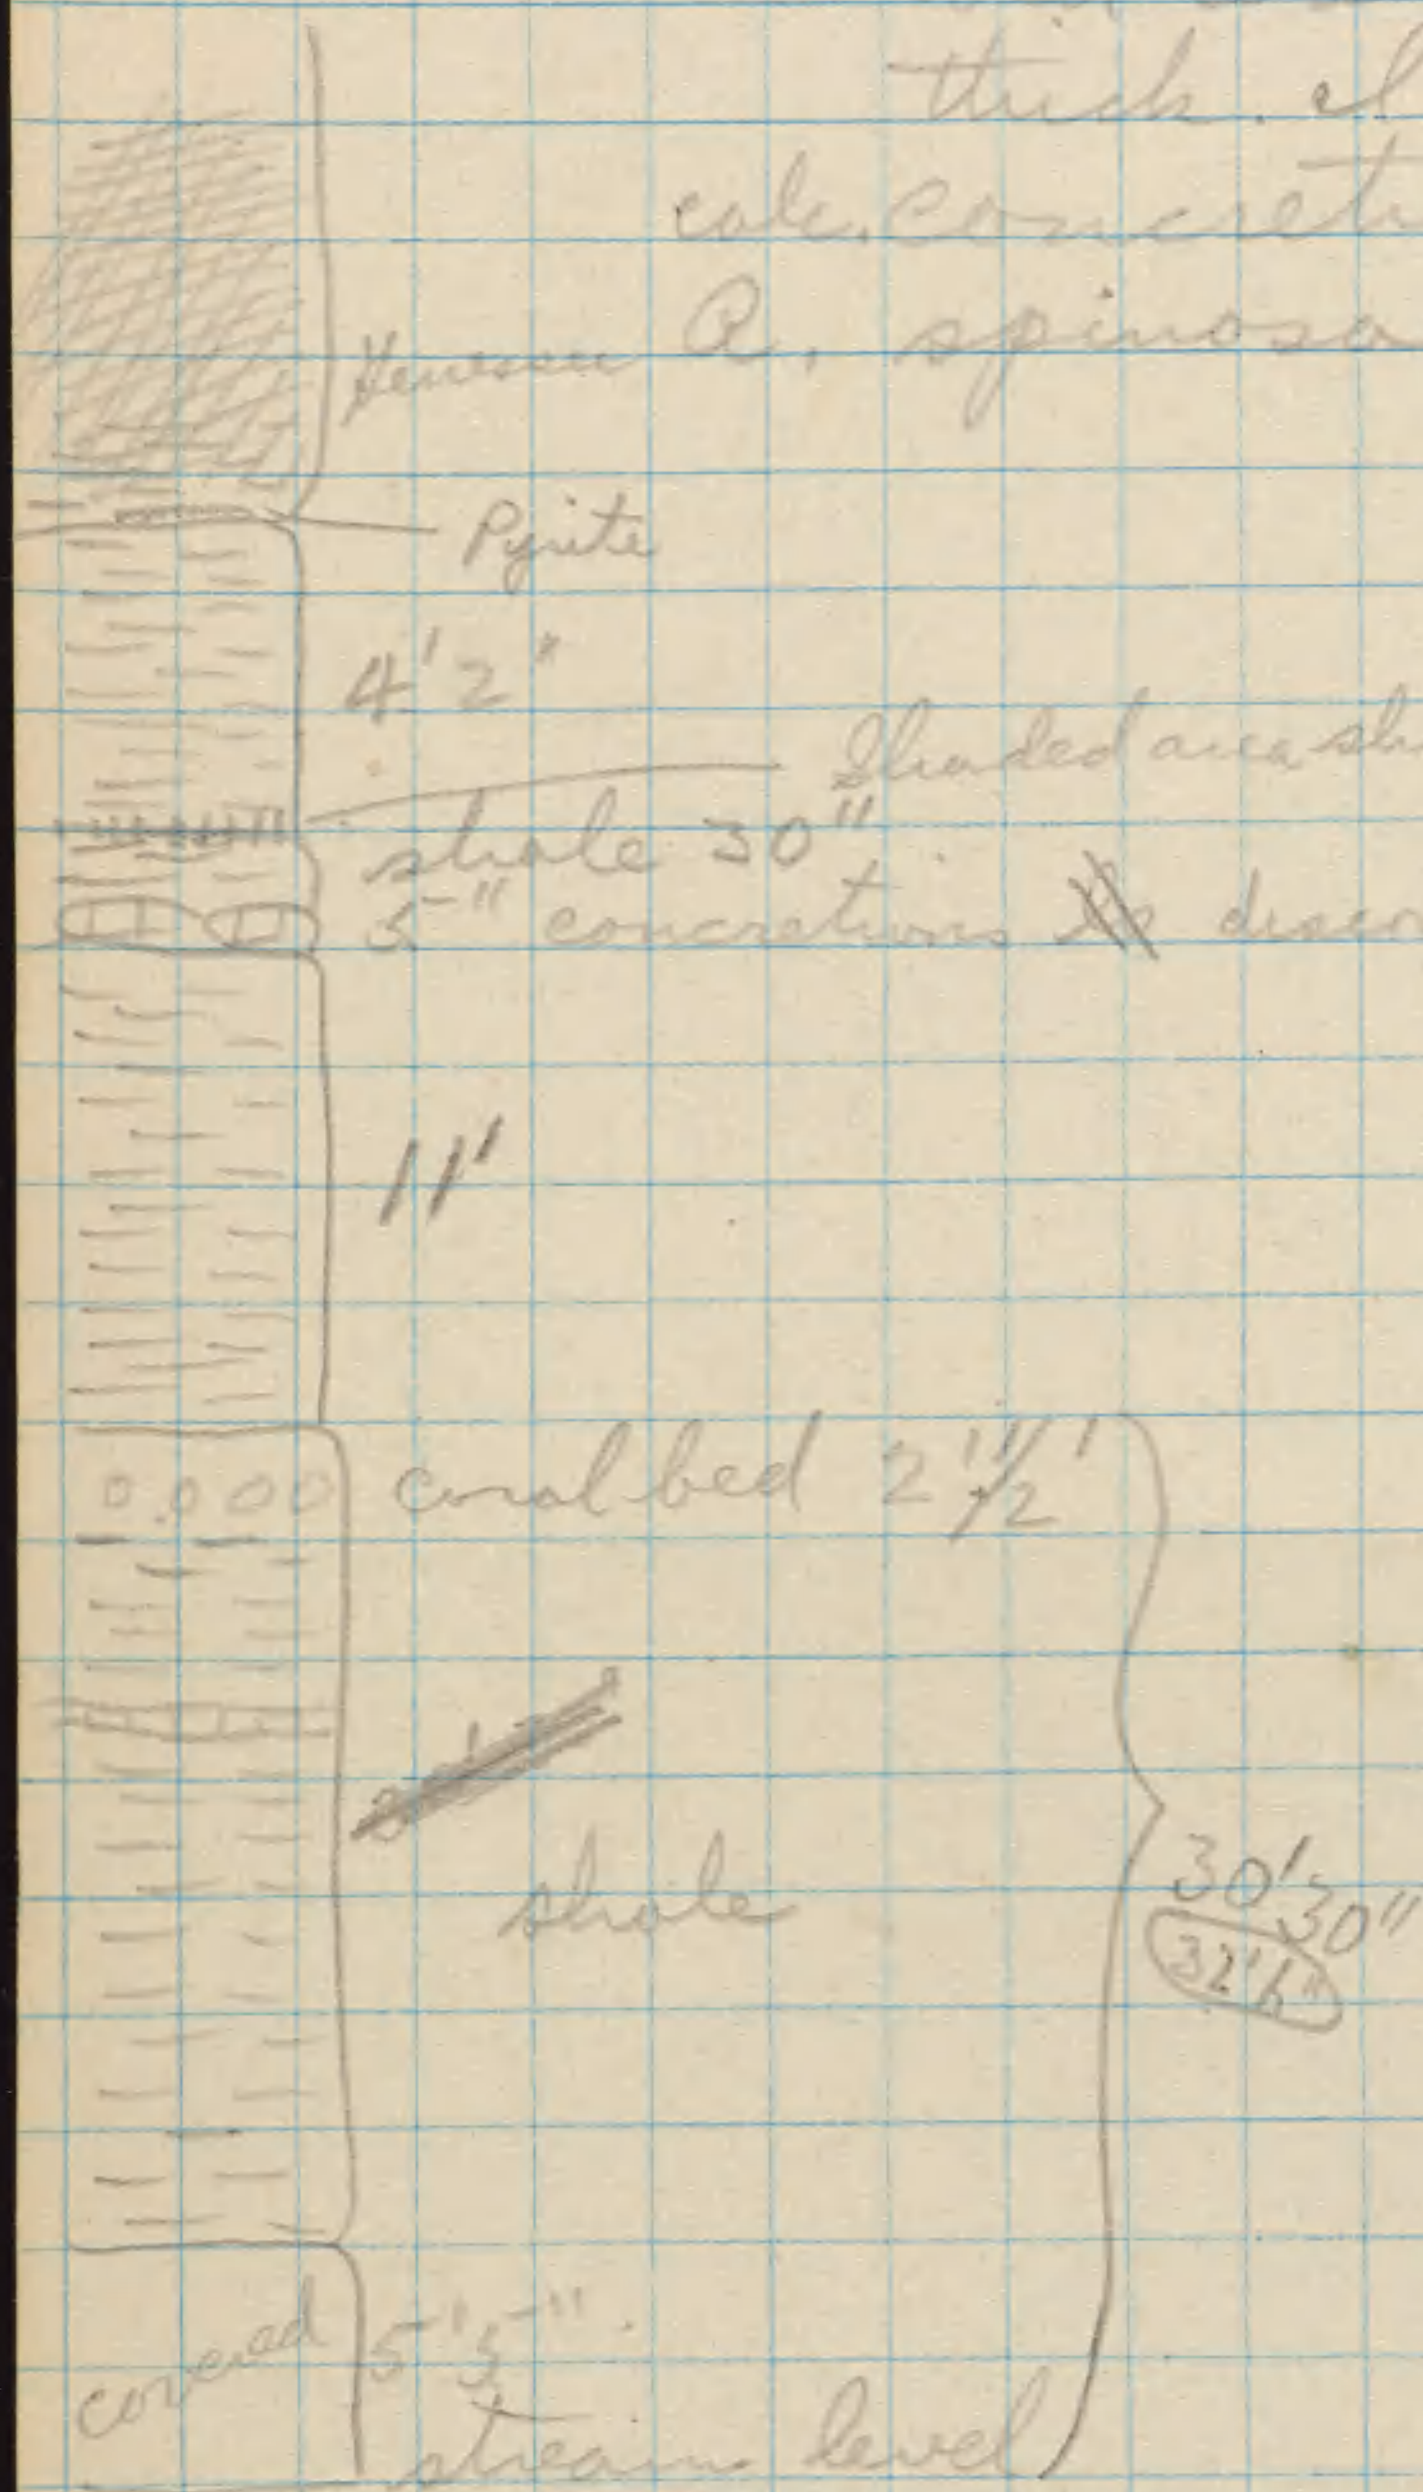 thick.
calc. concret
R. spinosa
Genesee
Pyrite
4'2"
Shaded area sh
shale 30"
5" concretions discon
11'
coral bed 2 1/2'
shale
30'30"
32'6"
covered 5'5"
stream level